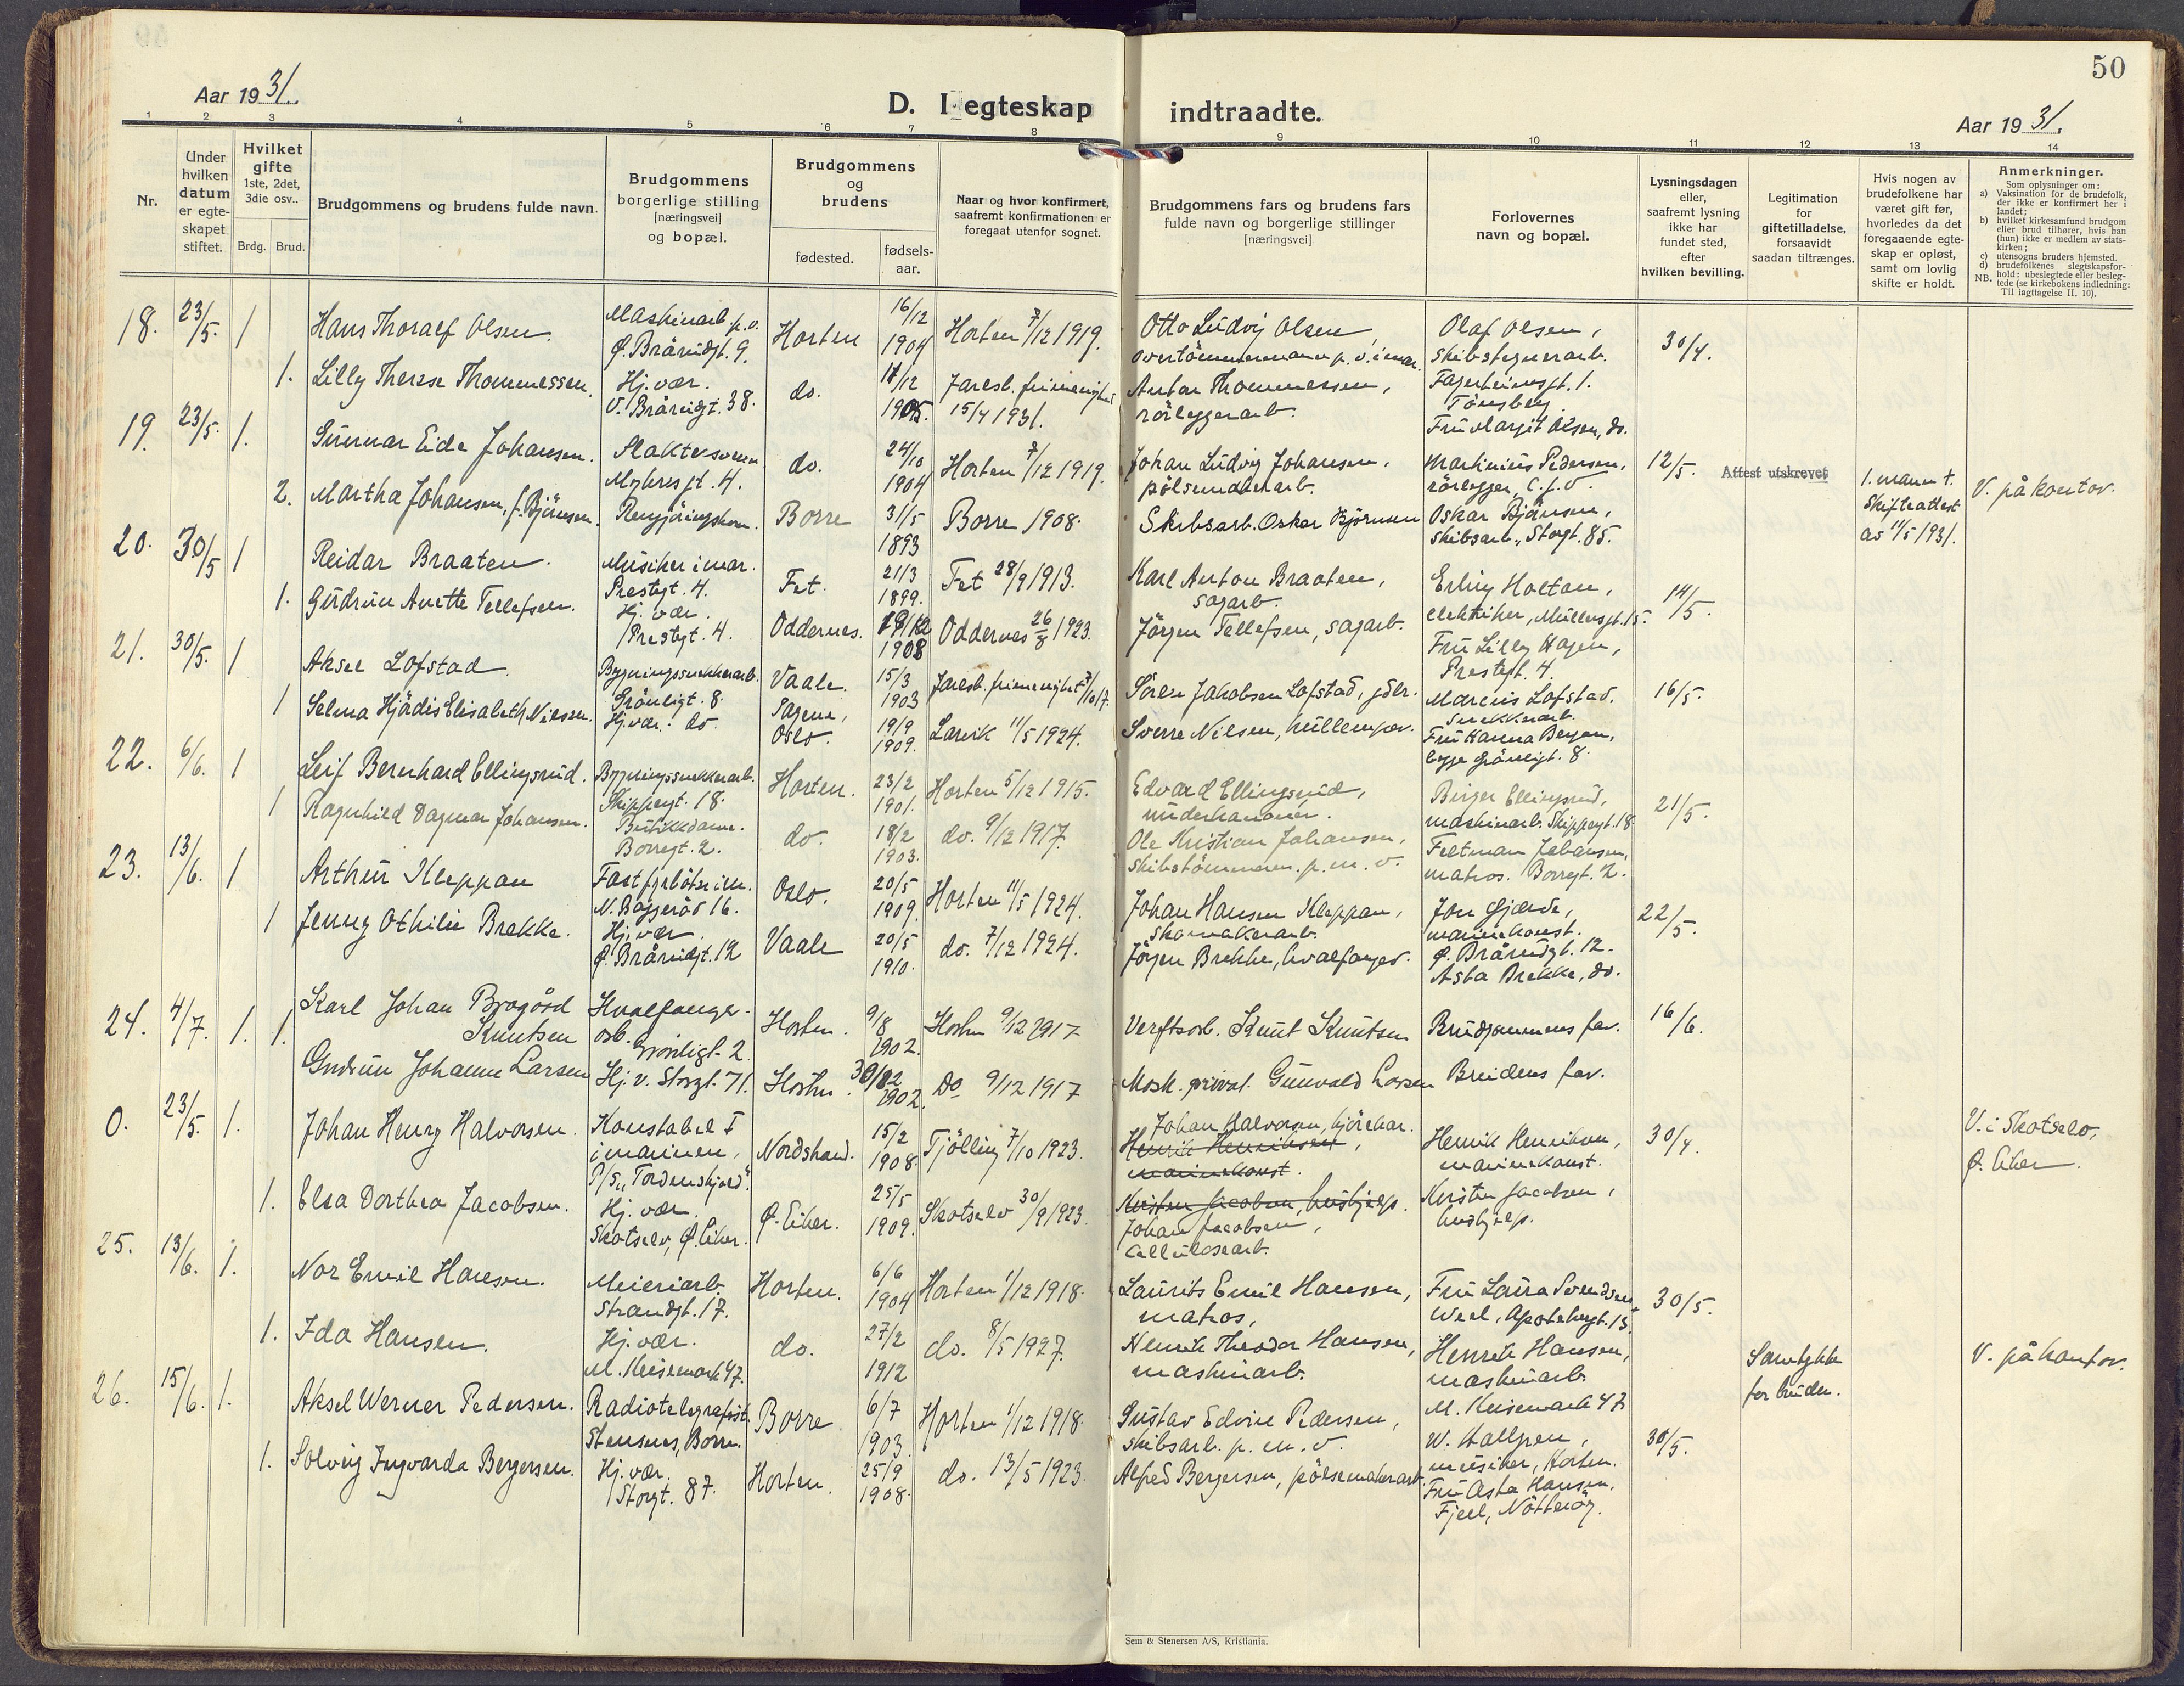 50
Aar 1931.
D. I egteskap indtraadte.
Aar 1931.
1 2 3 4 5 6 7 8 9 10 11 12 13 14
Nr.
Under hvilken datum er egteskapet stiftet.
Hvilket gifte 1ste, 2det, 3die osv..
Brdg. Brud.
Brudgommens og brudens fulde navn.
Brudgommens borgerlige stilling [næringsvei] og bopæl.
Brudgommens og brudens
fødested.
fødselsaar.
Naar og hvor konfirmert, saafremt konfirmationen er foregaat utenfor sognet.
Brudgommens fars og brudens fars fulde navn og borgerlige stillinger [næringsvei]
Forlovernes navn og bopæl.
Lysningsdagen eller, saafremt lysning ikke har fundet sted, efter hvilken bevilling.
Legitimation for giftetilladelse, forsaavidt saadan tiltrænges.
Hvis nogen av brudefolkene har været gift før, hvorledes da det foregaaende egteskap er opløst, samt om lovlig skifte er holdt.
Anmerkninger.
Som oplysninger om:
a) Vaksination for de brudefolk, der ikke er konfirmert her i landet;
b) hvilket kirkesamfund brudgom eller brud tilhører, hvis han (hun) ikke er medlem av statskirken;
c) utensogns bruders hjemsted.
d) brudefolkenes slegtskapsforhold: ubeslegtede eller beslegtede (se kirkebokens indledning:
NB. Til iagttagelse II. 10).
18. 23/5. 1 Hans Thoralf Olsen. Maskinarb. p.v. Ø. Bråvidgt. 9. Horten 16/12 1904 Horten 7/12 1919. Otto Ludvig Olsen, overtömmermann p.v. i mar. Olaf Olsen, skibstegnerarb. Fagerheimsgt. 1. Tönsberg. 30/4.
1. Lilly Therese Thommessen. Hj. vær. V. Bråvidgt. 38. do. 11/12 1905. Jarlsb. frimenighet 15/4 1931. Anton Thommessen, rörleggerarb. Fru Margit Olsen, do.
19. 23/5. 1. Gunnar Eide Johansen. Slaktersvenn Myhres gt. 4. do. 24/10 1904 Horten 7/12 1919. Johan Ludvig Johansen, pölsemakerarb. Martinius Pedersen, rörlegger, C.J.V. 12/5. Attest utskrevet
2. Martha Johansen, f. Björnsen. Rengjöringskon. Borre 31/5 1893 Borre 1908. Skibsarb. Oskar Björnsen Oskar Björnsen, skibsarb., Storgt. 85. 1. mann †. Skifteattest as 11/5 1931. V. på kontor.
20. 30/5 1 Reidar Braaten. Musiker i mar. Prestegt. 4. Fet. 21/3 1899. Fet 28/9 1913. Karl Anton Braaten, sagarb. Erling Holtan, elektriker, Müllersgt. 15. 14/5.
1. Gudrun Anette Tellefsen. Hj. vær. Prestegt. 4. Oddernes. 19/12 1908 Oddernes 26/8 1923. Jörgen Tellefsen, sagarb. Fru Lilly Hagen, Prestegt. 4.
21. 30/5. 1 Aksel Lofstad. Bygningssnekkerarb. Grönligt. 8. Vaale. 15/3 1903 Jarlsb. frimenighet 7/10 17. Sören Jakobsen Lofstad, gdbr. Marcus Lofstad, snekkerarb. 16/5.
1 Selma Hjördis Elisabeth Nilsen. Hj. vær. do. Sagene, Oslo. 19/9 1909. Larvik 11/5 1924. Sverre Nilsen, Fru Hanna Bergan, begge Grönligt. 8.
22. 6/6. 1 Leif Bernhard Ellingsrud. Bygningssnekkerarb. Skippergt. 18. Horten. 23/2 1901. Horten 5/12 1915. Edvard Ellingsrud, underkanonér. Birger Ellingsrud, maskinarb. Skippergt. 18. 21/5.
1 Ragnhild Dagmar Johansen. Butikkdame. Borregt. 2. do. 18/2 1903. do. 9/12 1917. Ole Kristian Johansen, skibstömmerm. p.m.v. Feltman Johansen, matros. Borregt. 2.
23. 13/6. 1 Arthur Kleppan Fast N. Baggeröd 16. Oslo. 20/5 1909. Horten 11/5 1924. Johan Hansen Kleppan, skomakerarb. Jon Gjærde, marinekonst. Ø. Bråvidgt. 12. 22/5.
1 Jenny Othilie Brekke. Hj. vær. Ø. Bråvidgt. 12 Vaale 20/5 1910. do. 7/12 1924. Jörgen Brekke, hvalfanger. Asta Brekke, do.
24. 4/7. 1. 1. Karl Johan Brogård Knutsen Hvalfangerarb. Grönligt. 2. Horten. 9/8 1902. Horten 9/12 1917 Verftsarb. Knut Knutsen Brudgommens far. 16/6.
Gudrun Johanne Larsen Hj. v. Storgt. 71. Horten. 30/12 1902. Do 9/12 1917 Mask. privat. Gunvald Larsen Brudens far.
0. 23/5. 1. Johan Henry Halvorsen. Konstabel I i marinen, P/S „Tordenskjold". Nordstrand. 15/2 1908. Tjölling 7/10 1923. Johan Halvorsen, kjörekar. Henrik Henriksen, marinekonst. Henrik Henriksen, marinekonst. 30/4. V. i Skotselv, Ø. Eiker.
1. Elsa Dorthea Jacobsen. Hj. vær. Skotselv, Ø. Eiker. Ø. Eiker. 25/5 1909. Skotselv 30/9 1923. Kirsten Jacobsen, hushjelp. Johan Jacobsen, cellulosearb. Kirsten Jacobsen, hushjelp.
25. 13/6. 1. Nor Emil Hansen. Meieriarb. Strandgt. 17. Horten. 6/6 1904 Horten 1/12 1918. Laurits Emil Hansen, matros, Fru Laura Svendsen Weel, Apotekergt. 13. 30/5.
1. Ida Hansen. Hj. vær. M. Keisemark 47. do. 27/2 1912 do. 8/5 1927. Henrik Theodor Hansen, maskinarb. Henrik Hansen, maskinarb. M. Keisemark 47. Samtykke for bruden. V. på kontor.
26. 15/6. 1. Aksel Werner Pedersen. Radiotelegrafist. Stensnes, Borre. Borre. 6/7 1903. Horten 1/12 1918. Gustav Edvin Pedersen, skibsarb. p.m.v. W. Hallgren, musiker, Horten. 30/5.
1. Solveig Ingvarda Bergersen. Hj. vær. Storgt. 87. Horten. 25/9 1908. do. 13/5 1923. Alfred Bergersen, pölsemakerarb. Fru Asta Hansen, Fjell, Nötteröy.
Sem & Stenersen A/S, Kristiania.